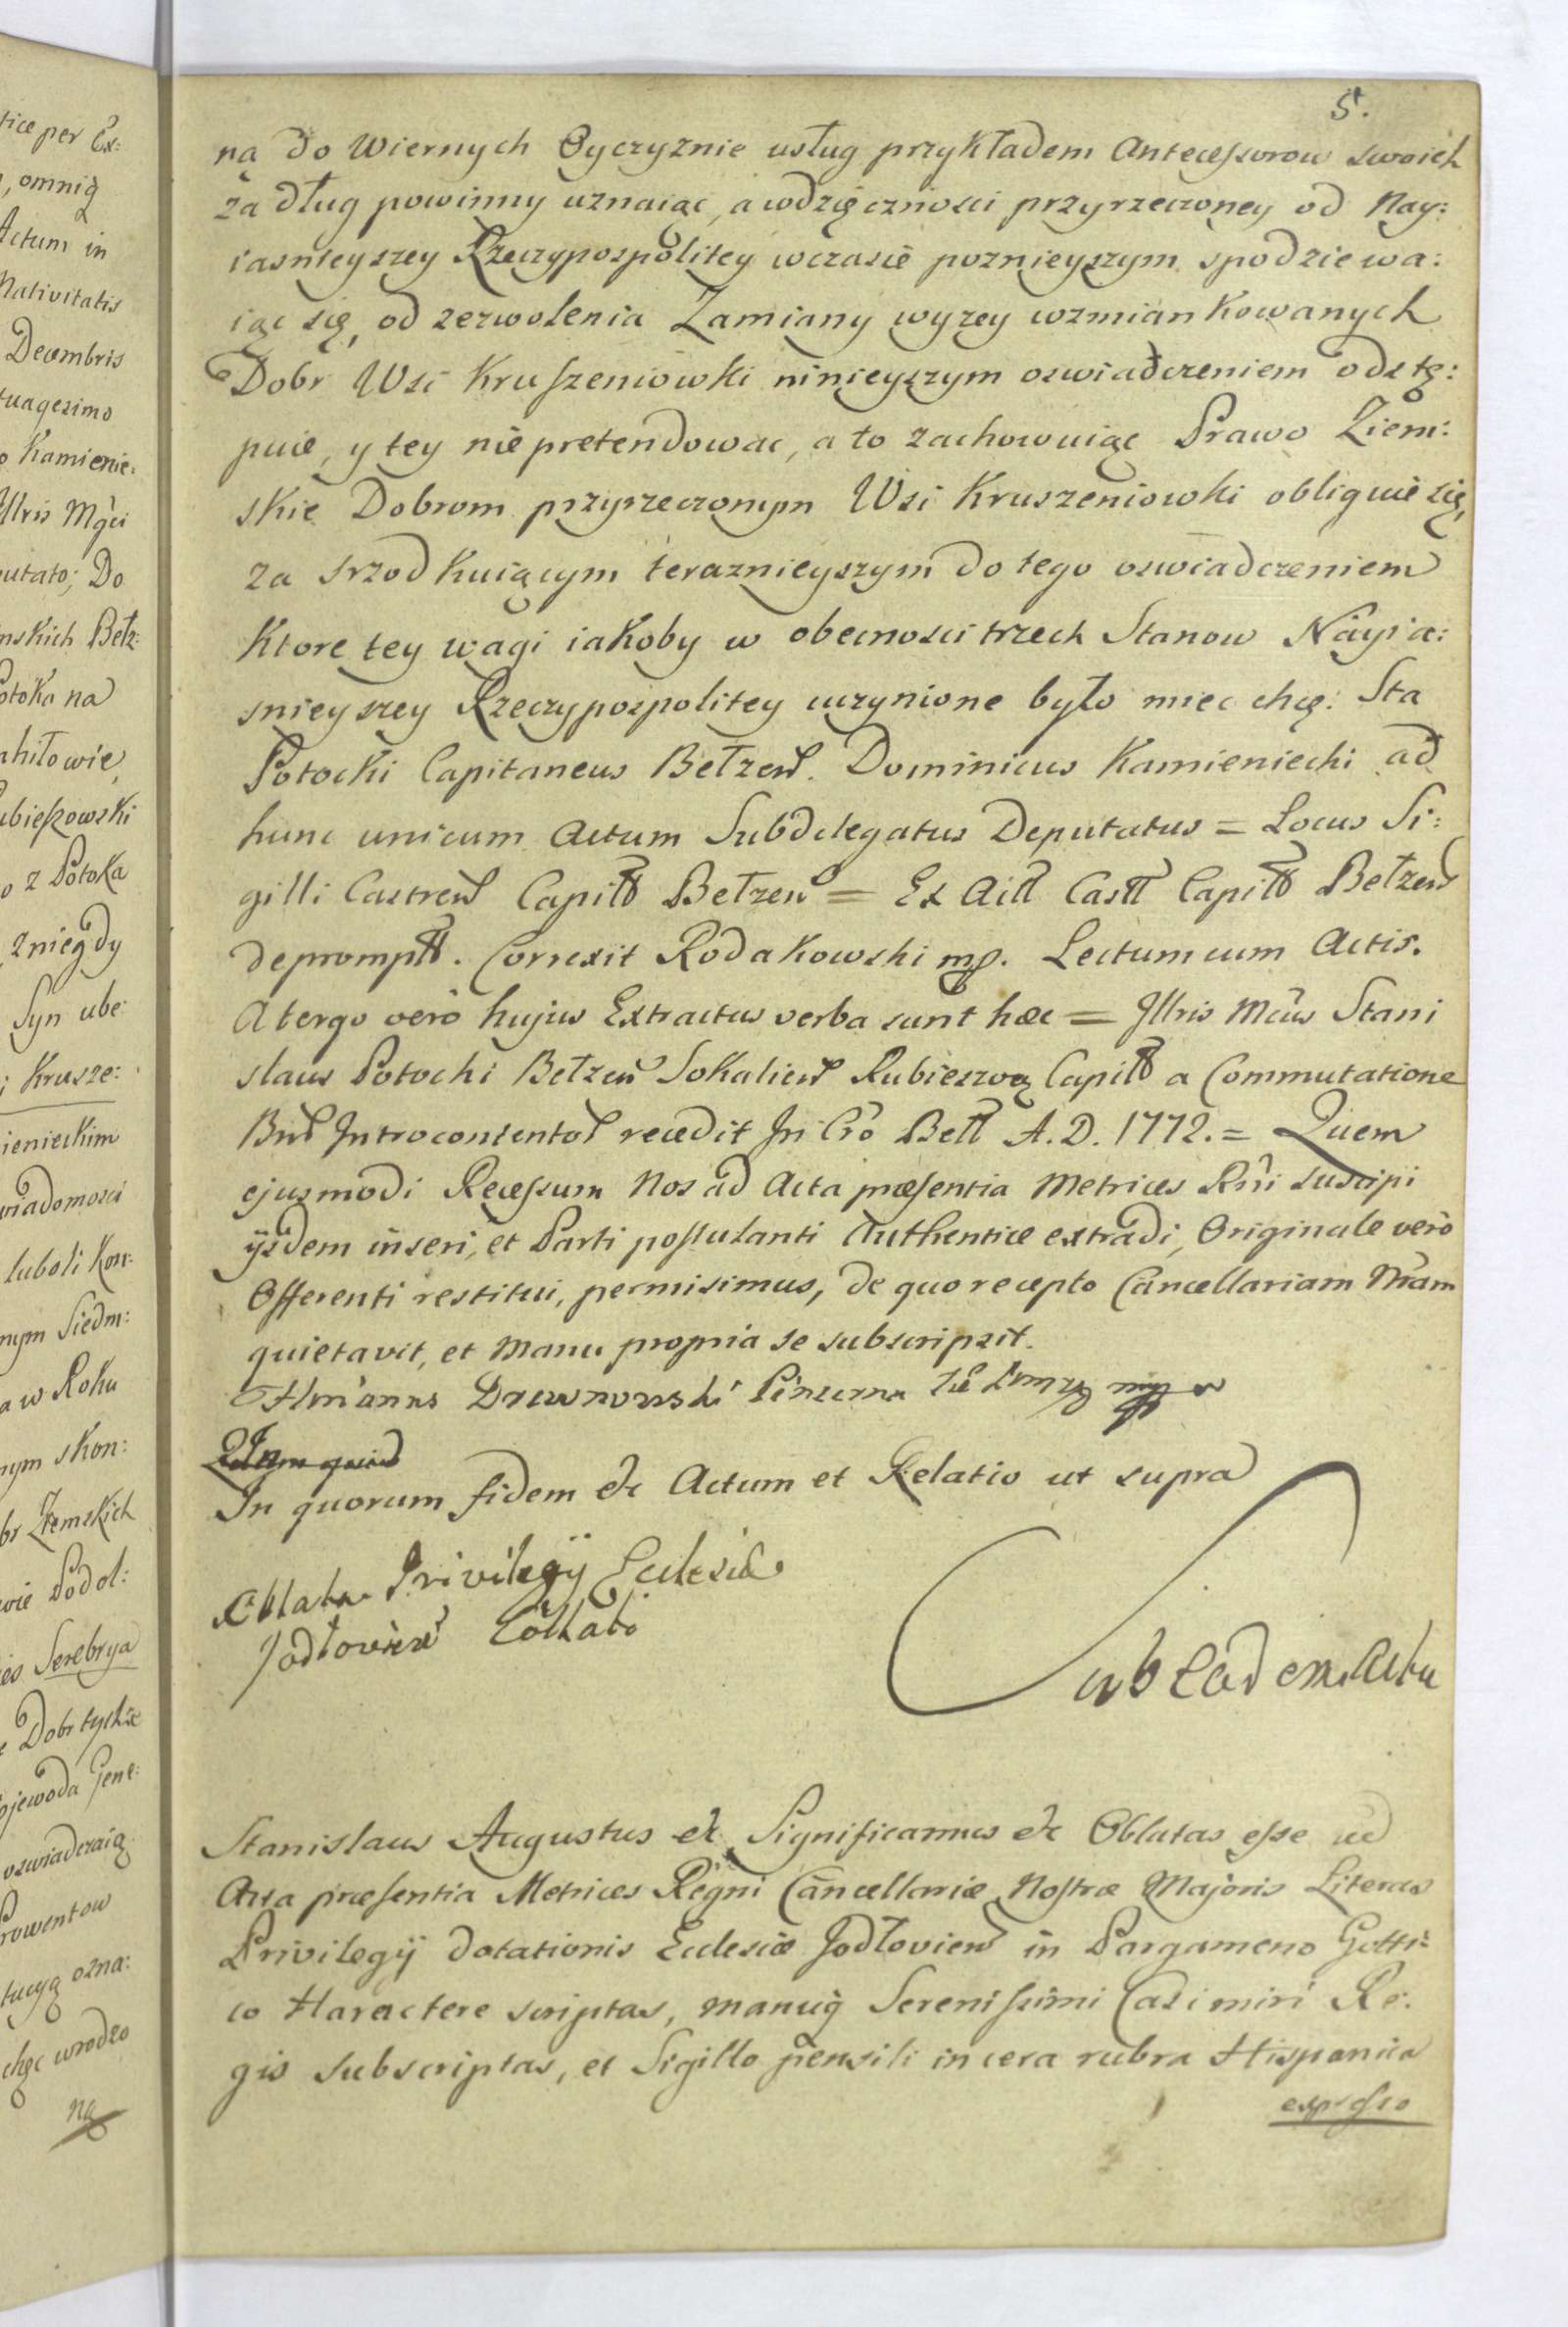 5.
ną do Wiernych Oyczyznie usług przykładem Antecessorow swoich
za dług powinny uznaiąc, a wdzięcznosci przyrzeczoney od Nay:
iasnieyszey Rzeczypospolitey wczasie poznieyszym spodziewa:
iąc się, od zezwolenia Zamiany wyzey wzmiankowanych
Dobr Wsi Kruszeniowki ninieyszym oswiadczeniem odstę:
puie, y tey nie pretendowac, a to zachowuiąc Prawo Ziem:
skie Dobrom przyrzeczonym Wsi Kruszeniowki obliguie się,
za srzodkuiącym teraznieyszym do tego oswiadczeniem
Ktore tey wagi iakoby w obecnosci trzech Stanow Nayia:
snieyszey Rzeczypospolitey uczynione było miec chcę: Sta
Potocki Capitaneus Bełzen. Dominicus Kamieniecki ad
hunc unicum Actum Subdelegatus Deputatus = Locus Si:
gilli Castren Capitl Bełzen = Ex Actt Castt Capitl Bełzen
deprompt. Correxit Rodakowski mp. Lectum cum Actis.
A tergo verò hujus Extractus verba sunt hæc = Illris Mcus Stani
slaus Potocki Bełzen Sokalien Rubieszov Capitl a Commutatione
Bnr Introcontentor recedit In Cro Bełł A. D. 1772. = Quem
ejusmodi Recessum Nos ad Acta præsentia Metrices Rni suscipi
ijsdem inseri, et Parti postulanti Authentice extradi, Originale verò
Offerenti restitui, permisimus, de quo recepto Cancellariam Nram
quietavit, et Manu propria se subscripsit.
Drewnowski Pincerna mp
In quorum fidem &c Actum et Relatio ut supra
Oblata Privilegij Eclesiæ
Jodłovien Collato
Sub Eadem Actu
Stanislaus Augustus &c Significamus &c Oblatas esse ad
Acta præsentia Metrices Regni Cancellariæ Nostræ Majoris Literas
Privilegij dotationis Eclesiæ Jodłovien in Pargameno Gotti:
co Haractere scriptas, manuq Serenissimi Casimiri Re:
gis subscriptas, et Sigillo pensili in cera rubra Hispanica
expresso
tice per Ex:
, omniq
Actum in
Nativitatis
Decembris
tuagesimo
o Kamienie:
Illris Mgci
putato; Do
nskich Bełz:
Potoka na
ahiłowie,
ubieszowski
o z Potoka
zniegdy
Syn ube:
i Krusze:
ienieckim
wiadomosci
luboli Kon:
nym Siedm:
a w Roku
nym skon:
br Ziemskich
wie Podol:
ies Serebrya
e Dobr tychże
ojewoda Gene:
oswiadczaią
Prowentow
tucyą ozna:
chęc wrodzo
ną